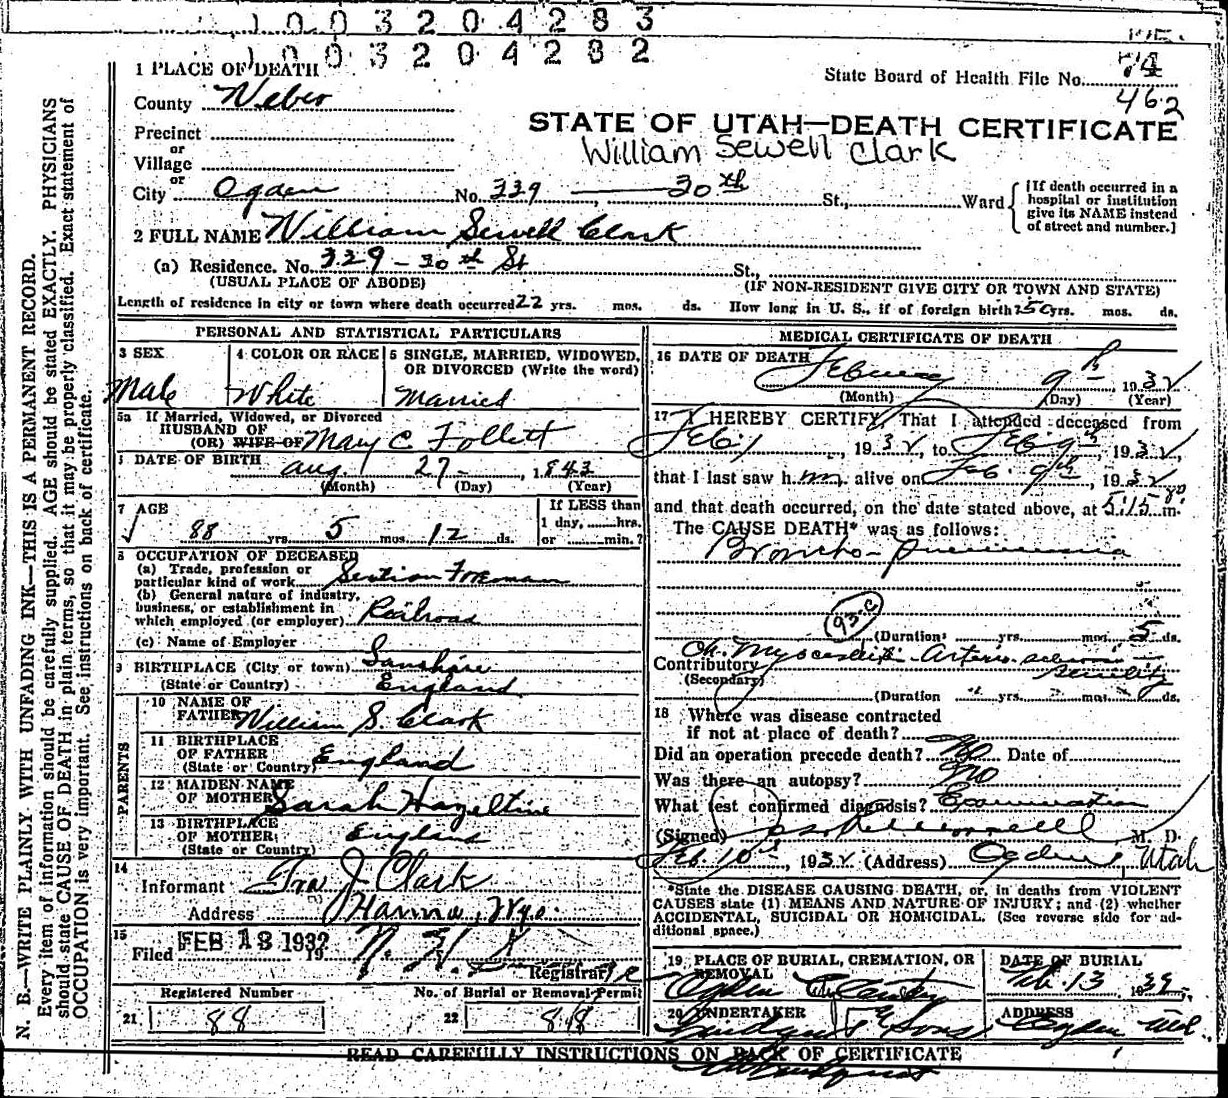 1003204283
1003204282
1 PLACE OF DEATH
State Board of Health File No. 74
462
County Weber
STATE OF UTAH—DEATH CERTIFICATE
William Sewell Clark
Precinct
or
Village
or
City Ogden No. 339 — 30th St., Ward
[If death occurred in a
hospital or institution
give its NAME instead
of street and number.]
2 FULL NAME William Sewell Clark
(a) Residence. No. 329 - 30th St St.,
(USUAL PLACE OF ABODE) (IF NON-RESIDENT GIVE CITY OR TOWN AND STATE)
Length of residence in city or town where death occurred 22 yrs. mos. ds. How long in U. S., if of foreign birth? 50 yrs. mos. ds.
PERSONAL AND STATISTICAL PARTICULARS
3 SEX
Male
4 COLOR OR RACE
White
5 SINGLE, MARRIED, WIDOWED,
OR DIVORCED (Write the word)
Married
5a If Married, Widowed, or Divorced
HUSBAND OF
(OR) WIFE OF Mary C. Follett
DATE OF BIRTH Aug 27 1843
(Month) (Day) (Year)
7 AGE
88 yrs. 5 mos. 12 ds.
If LESS than
1 day, hrs.
or min.?
8 OCCUPATION OF DECEASED
(a) Trade, profession or
particular kind of work Section Foreman
(b) General nature of industry,
business, or establishment in
which employed (or employer) Railroad
(c) Name of Employer
9 BIRTHPLACE (City or town)
(State or Country) England
PARENTS
10 NAME OF
FATHER William S. Clark
11 BIRTHPLACE
OF FATHER
(State or Country) England
12 MAIDEN NAME
OF MOTHER Sarah Hazeltine
13 BIRTHPLACE
OF MOTHER
(State or Country) England
14
Informant Ira J Clark
Address Hanna, Wyo.
15
Filed FEB 13 1932 19
Registrar
Registered Number No. of Burial or Removal Permit
21 88 22 818
MEDICAL CERTIFICATE OF DEATH
16 DATE OF DEATH February 9th 1932
(Month) (Day) (Year)
17 I HEREBY CERTIFY, That I attended deceased from
Feb 1932, to Feb 9th, 1932,
that I last saw him alive on Feb 9th, 1932
and that death occurred, on the date stated above, at 5:15 m.
The CAUSE DEATH* was as follows:
Broncho-pneumonia
93-c
(Duration) yrs. mos. 5 ds.
Ch. Myocarditis Arterio sclerosis
Contributory Senility
(Secondary)
(Duration yrs. mos. ds.
18 Where was disease contracted
if not at place of death?
Did an operation precede death? No Date of
Was there an autopsy? No
What test confirmed diagnosis? Examination
(Signed) M. D.
Feb. 10th, 1932 (Address) Ogden, Utah
*State the DISEASE CAUSING DEATH, or, in deaths from VIOLENT
CAUSES state (1) MEANS AND NATURE OF INJURY; and (2) whether
ACCIDENTAL, SUICIDAL OR HOMICIDAL. (See reverse side for ad-
ditional space.)
19 PLACE OF BURIAL, CREMATION, OR
REMOVAL
Ogden City Cemetery
DATE OF BURIAL
Feb. 13 1932
20 UNDERTAKER
Lindquist & Sons
ADDRESS
Ogden Utah
READ CAREFULLY INSTRUCTIONS ON BACK OF CERTIFICATE
N. B.—WRITE PLAINLY WITH UNFADING INK—THIS IS A PERMANENT RECORD.
Every item of information should be carefully supplied. AGE should be stated EXACTLY. PHYSICIANS
should state CAUSE OF DEATH in plain terms, so that it may be properly classified. Exact statement of
OCCUPATION is very important. See instructions on back of certificate.